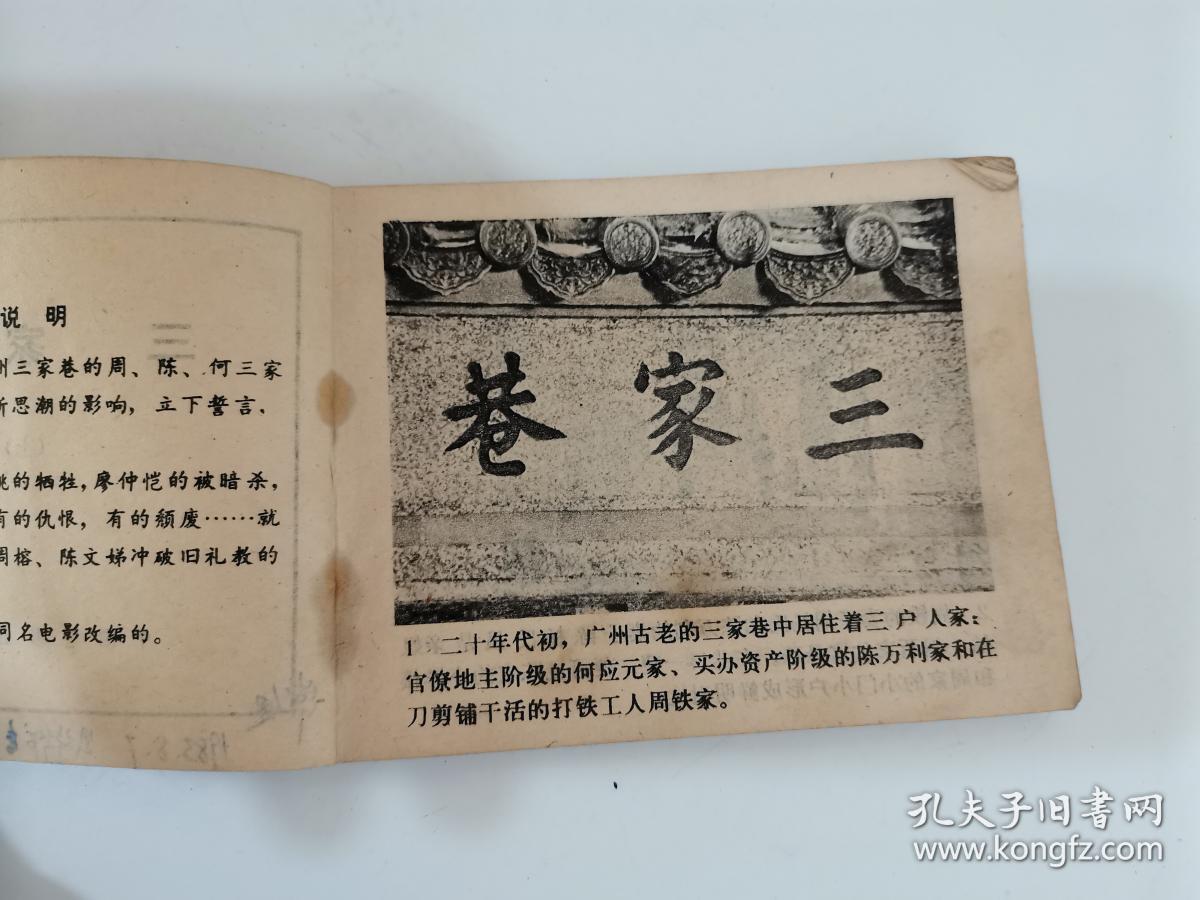 说 明
州三家巷的周、陈、何三家
新思潮的影响，立下誓言，
的牺牲，廖仲恺的被暗杀，
有的仇恨，有的颓废……就
周榕、陈文娣冲破旧礼教的
同名电影改编的。
巷家三
1 二十年代初，广州古老的三家巷中居住着三户人家：
官僚地主阶级的何应元家、买办资产阶级的陈万利家和在
刀剪铺干活的打铁工人周铁家。
孔夫子旧书网
www.kongfz.com